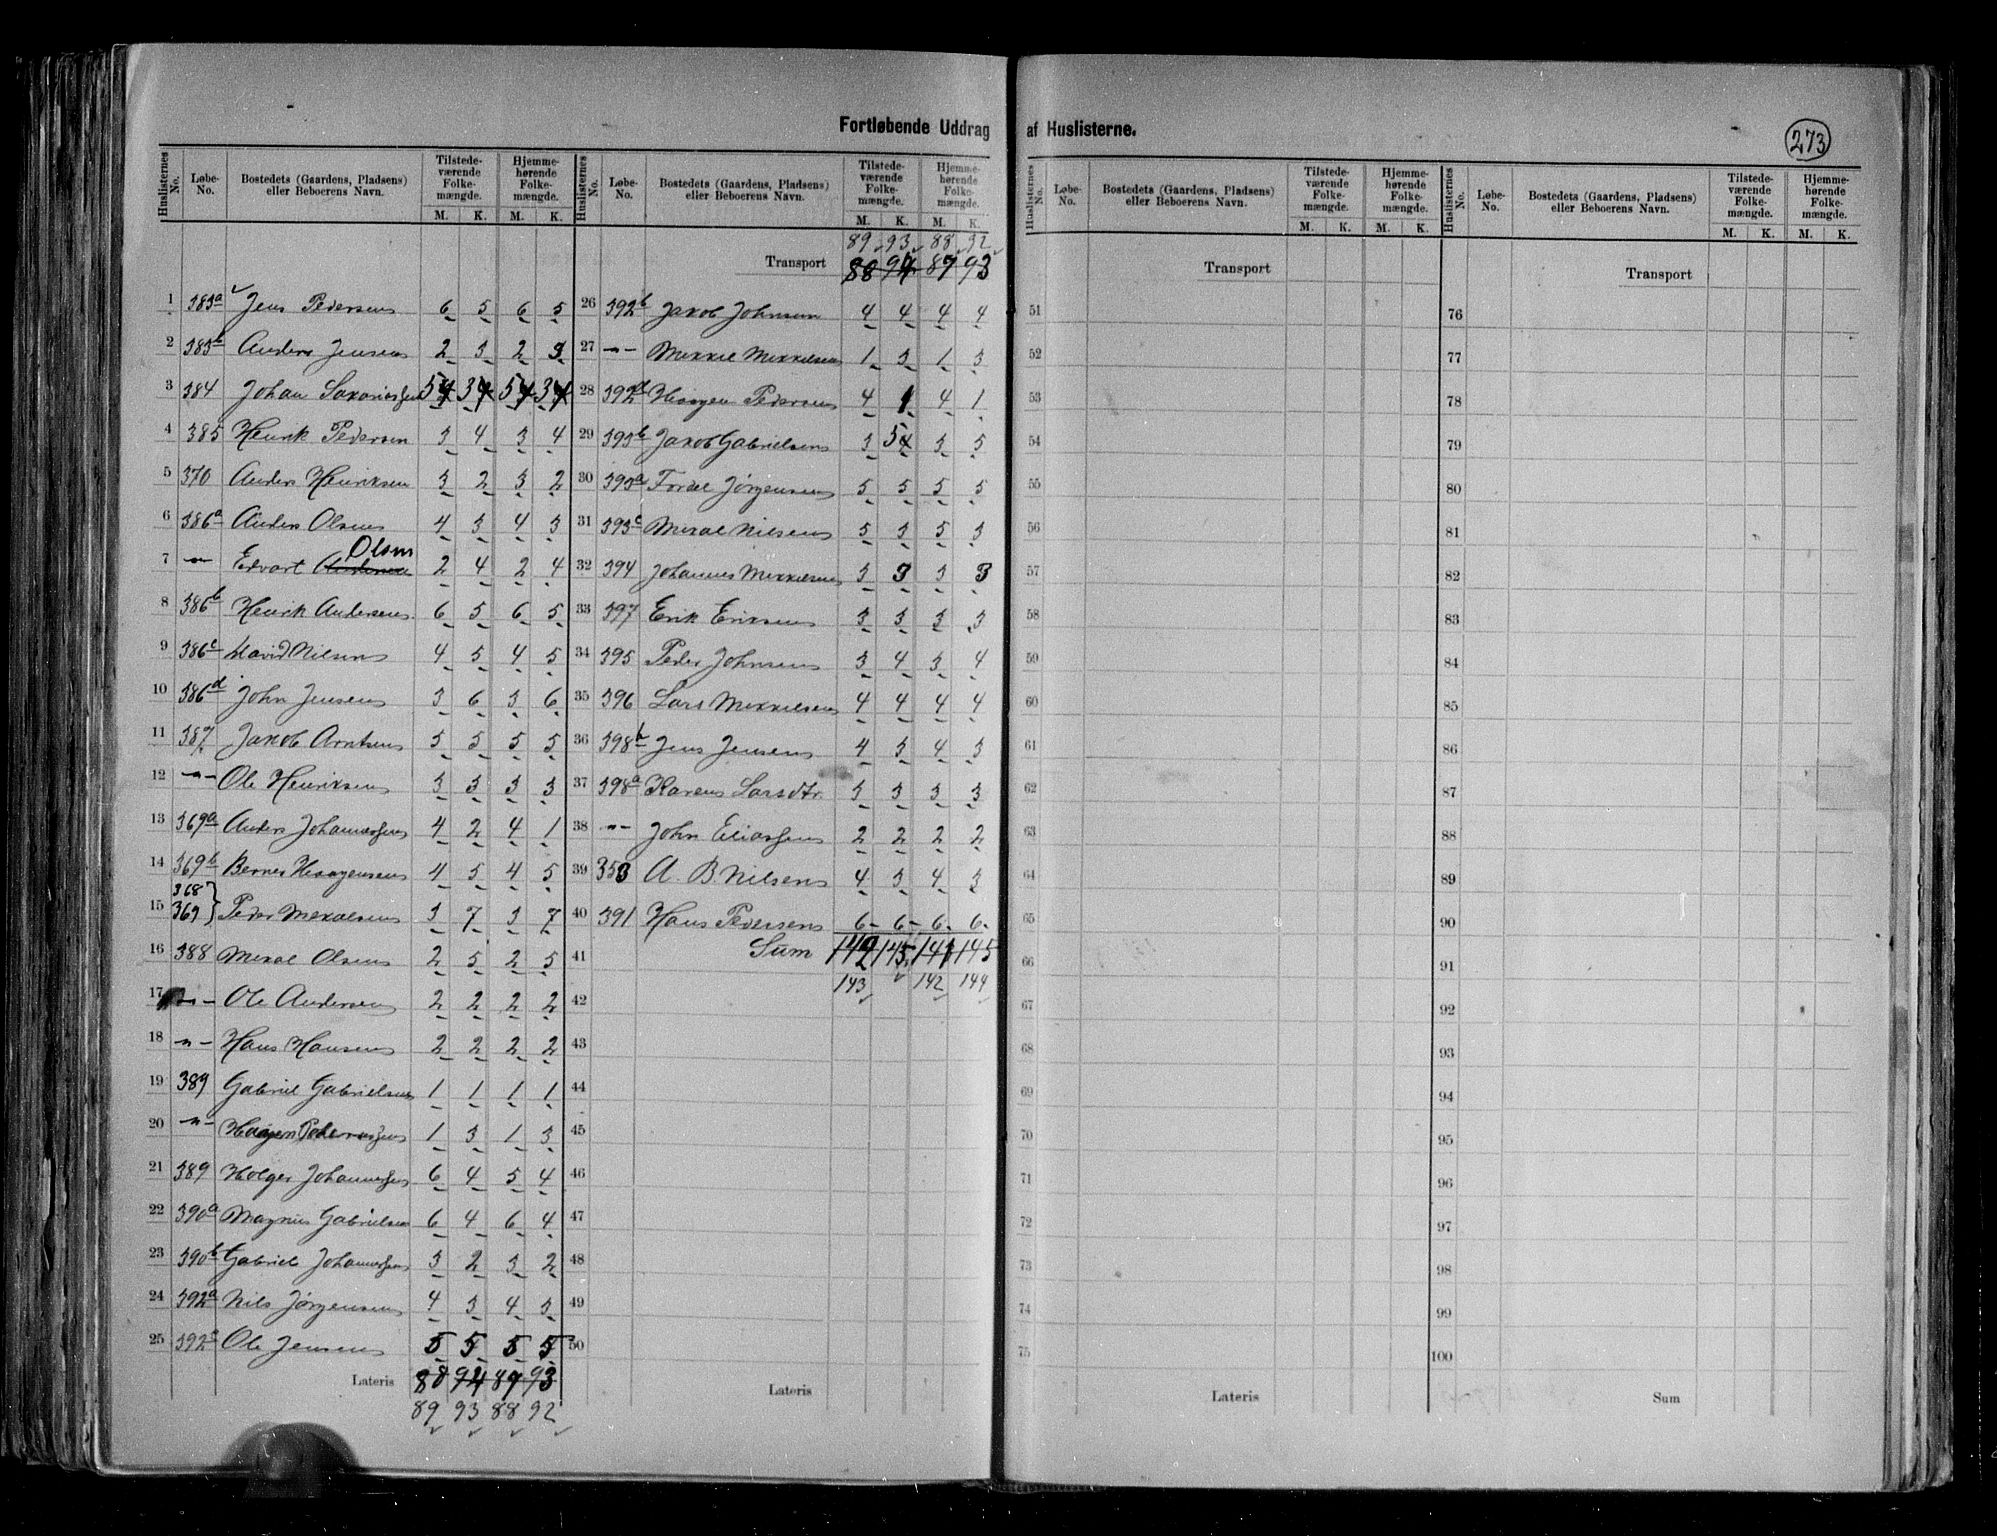 Fortløbende Uddrag af Huslisterne.
273
Huslisternes No. Løbe-No. Bostedets (Gaardens, Pladsens) eller Beboerens Navn. Tilstedeværende Folkemængde. M. K. Hjemmehørende Folkemængde. M. K.
1 383a Jens Pedersen 6 5 6 5
2 383b Anders Jensen 2 3 2 3
3 384 Johan Saxariassen 5 3 5 3
4 385 Henrik Pedersen 3 4 3 4
5 370 Anders Henriksen 3 2 3 2
6 386a Anders Olsen 4 3 4 3
7 -"- Edvart Olsen 2 4 2 4
8 386b Henrik Andersen 6 5 6 5
9 386c David Nilsen 4 5 4 5
10 386d John Jensen 3 6 3 6
11 387 Jakob Arntsen 5 5 5 5
12 -"- Ole Henriksen 3 3 3 3
13 369a Anders Johannessen 4 2 4 1
14 369b Berner Haagensen 4 5 4 5
15 368 369 } Peder Mekalsen 3 7 3 7
16 388 Mekal Olsen 2 5 2 5
17 -"- Ole Andersen 2 2 2 2
18 -"- Hans Hansen 2 2 2 2
19 389 Gabriel Gabrielsen 1 1 1 1
20 -"- Haagen 1 3 1 3
21 389 Holger Johannessen 6 4 5 4
22 390a Magnus Gabrielsen 6 4 6 4
23 390b Gabriel Johannessen 3 2 3 2
24 392a Nils Jørgensen 4 3 4 3
25 392c Ole Jensen 5 5 5 5
Lateris 88 94 87 93
89 93 88 92
Huslisternes No. Løbe-No. Bostedets (Gaardens, Pladsens) eller Beboerens Navn. Tilstedeværende Folkemængde. M. K. Hjemmehørende Folkemængde. M. K.
89 93 88 92
Transport 88 94 87 93
26 392b Jakob Johnsen 4 4 4 4
27 -"- Mekkel Mekkelsen 1 3 1 3
28 392d Haagen Pedersen 4 1 4 1
29 393b Jakob Gabrielsen 3 5 3 5
30 393a Fordel Jørgensen 5 5 5 5
31 393c Mekal Nilsen 5 3 5 3
32 394 Johannes Mekkelsen 3 3 3 3
33 397 Erik Eriksen 3 3 3 3
34 395 Peder Johnsen 3 4 3 4
35 396 Lars Mekkelsen 4 4 4 4
36 398b Jens Jensen 4 3 4 3
37 398a Karen Larsdtr. 3 3 3 3
38 -"- John Eliassen 2 2 2 2
39 353 A. B. Nilsen 4 3 4 3
40 391 Hans Pedersen 6 6 6 6
41 Sum 142 145 141 145
42 143 142 144
43
44
45
46
47
48
49
50
Lateris
Huslisternes No. Løbe-No. Bostedets (Gaardens, Pladsens) eller Beboerens Navn. Tilstedeværende Folkemængde. M. K. Hjemmehørende Folkemængde. M. K.
Transport
51
52
53
54
55
56
57
58
59
60
61
62
63
64
65
66
67
68
69
70
71
72
73
74
75
Lateris
Huslisternes No. Løbe-No. Bostedets (Gaardens, Pladsens) eller Beboerens Navn. Tilstedeværende Folkemængde. M. K. Hjemmehørende Folkemængde. M. K.
Transport
76
77
78
79
80
81
82
83
84
85
86
87
88
89
90
91
92
93
94
95
96
97
98
99
100
Sum